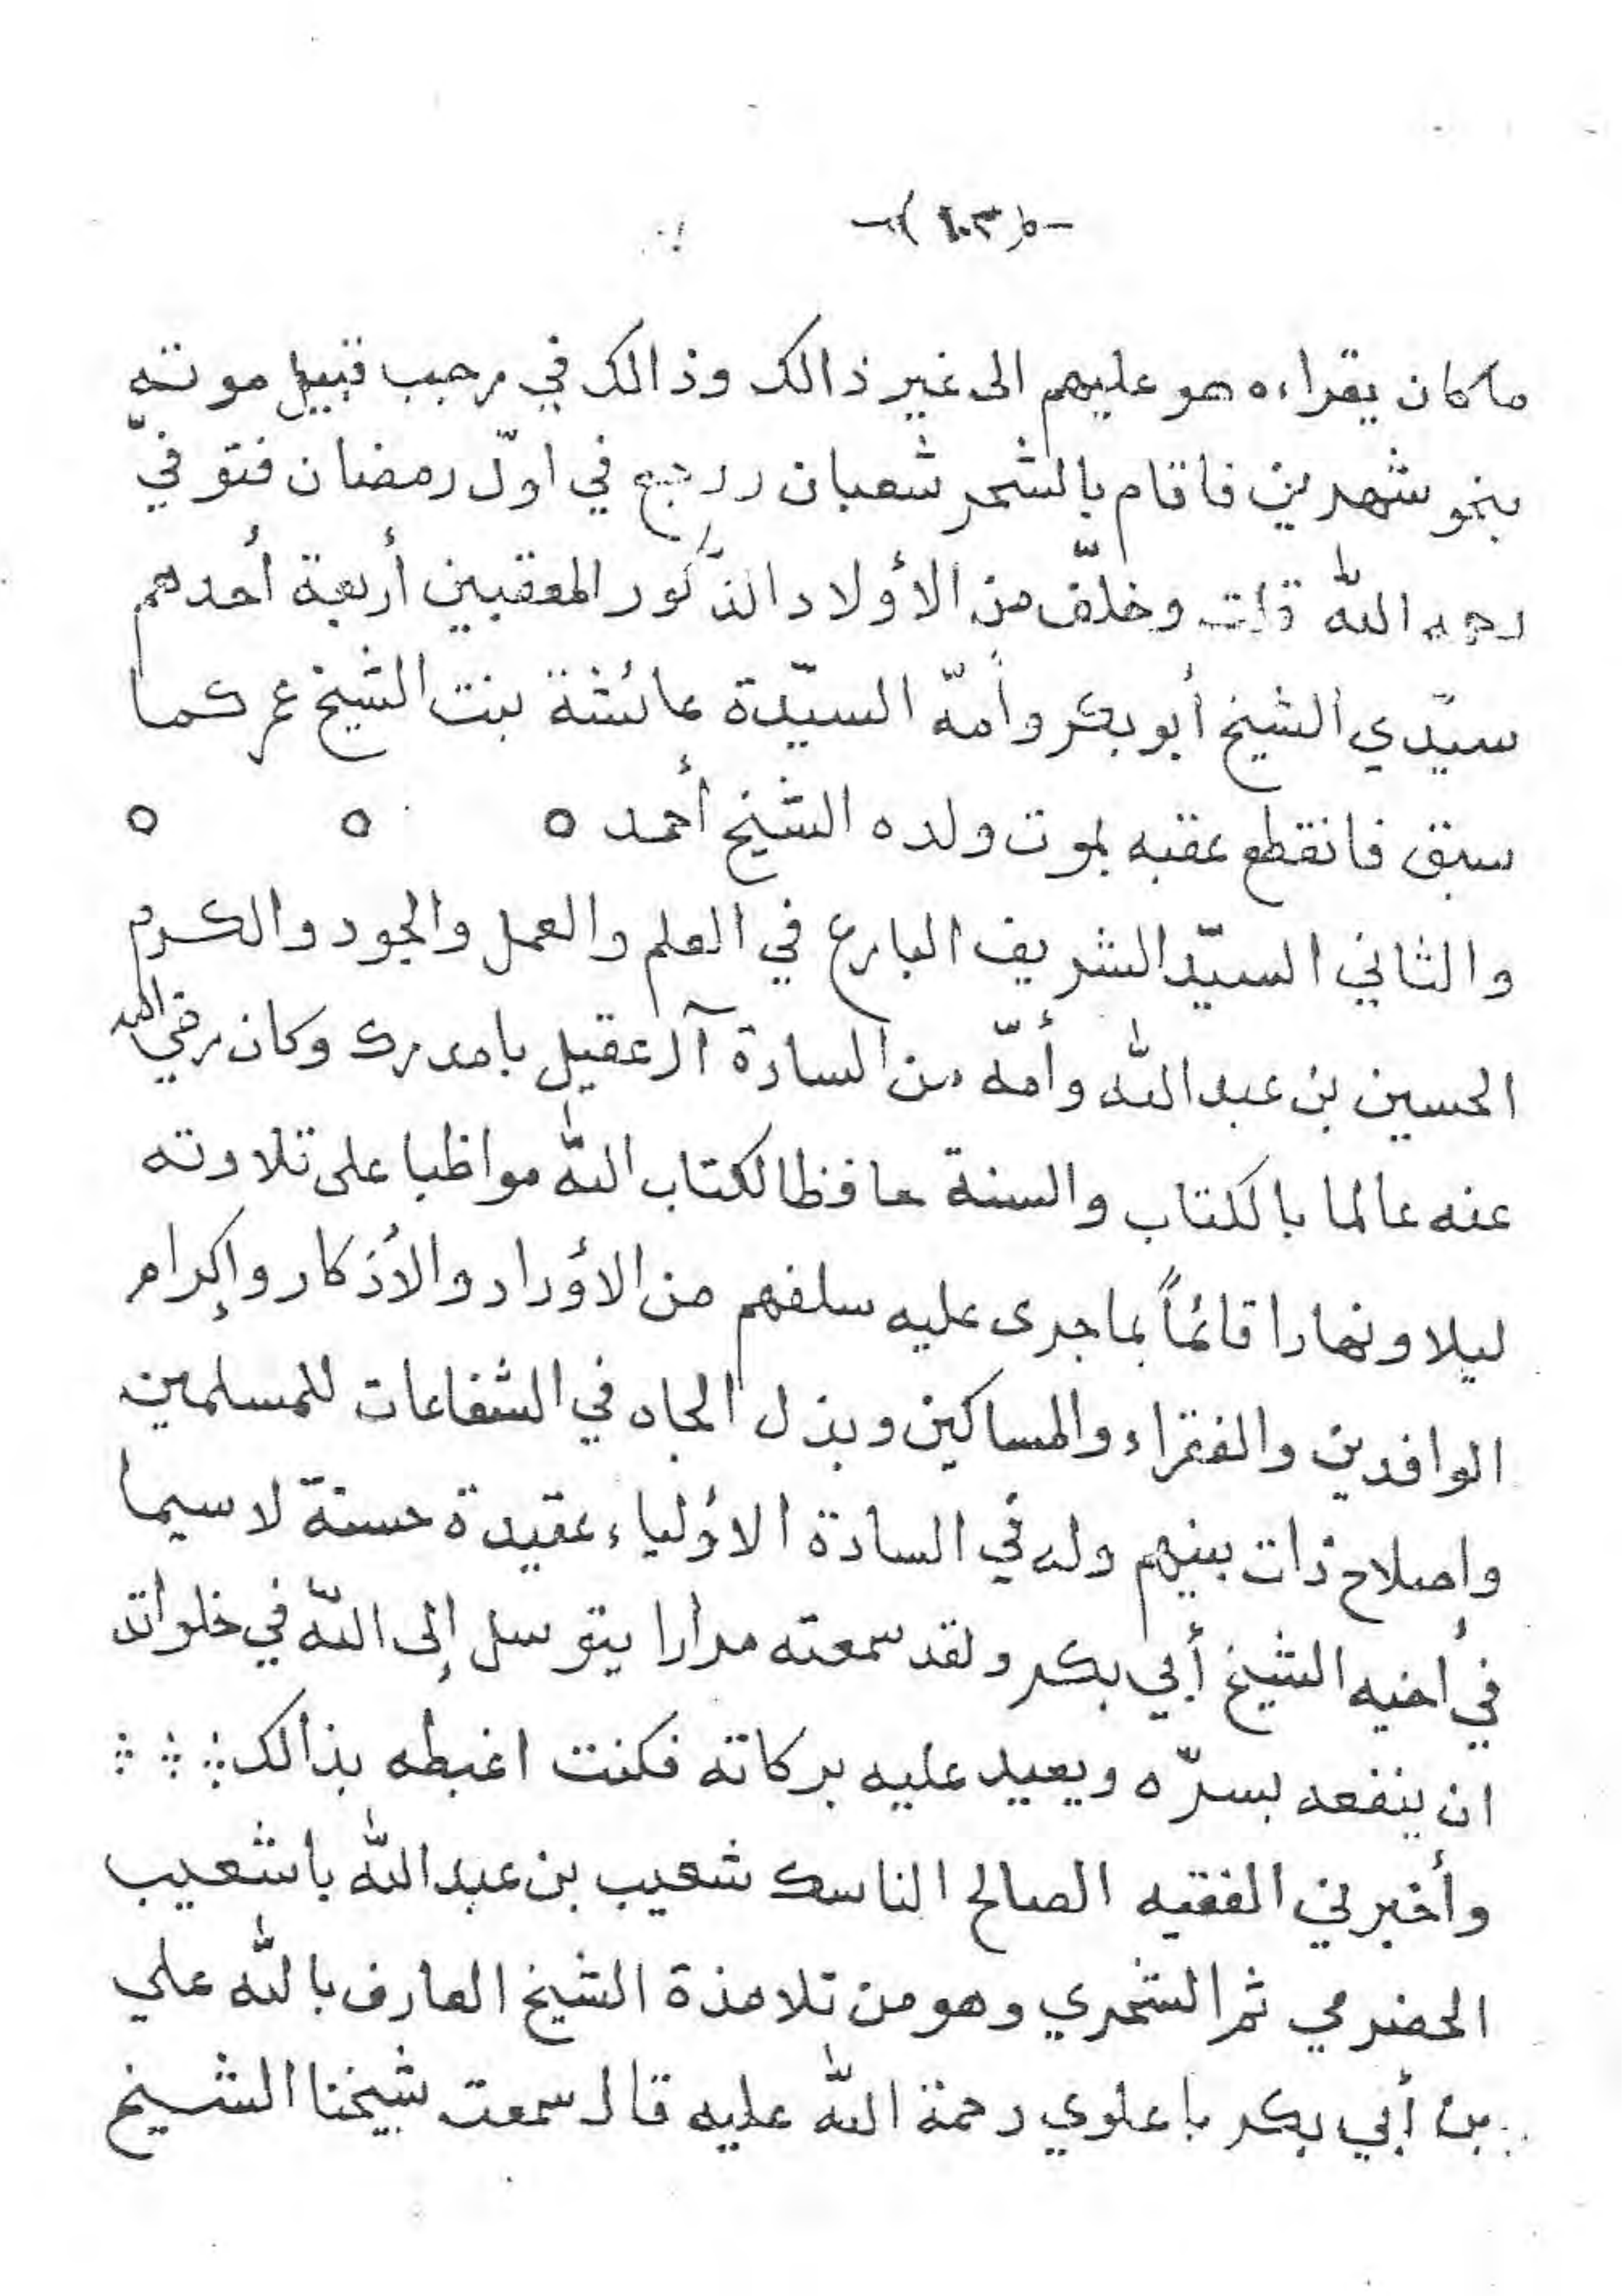 -(١٠٣)-
ما كان يقراءه هو عليهم الى غير ذالك وذالك في رجب قبيل موته
بنحو شهرين فاقام بالشحر شعبان ورجع في اوّل رمضان فتوفيّ
رحمه اللّه قلت وخلّف من الأولاد الذّكور المعقبين أربعة أحدهم
سيّدي الشيخ أبو بكر وأمّه السيّدة عائشة بنت الشيخ عمر كما
سبق فانقطع عقبه بموت ولده الشيخ أحمد ٥ ٥ ٥
والثاني السيّد الشريف البارع في العلم والعمل والجود والكرم
الحسين بن عبد اللّه وأمّه من السادة آل عقيل بامدرك وكان رضي الله
عنه عالما بالكتاب والسنة حافظا لكتاب اللّه مواظبا على تلاوته
ليلا ونهارا قائماً بما جرى عليه سلفهم من الأوراد والأذكار وإكرام
الوافدين والفقراء والمساكين وبذل الجاه في الشفاعات للمسلمين
واصلاح ذات بينهم وله في السادة الأولياء عقيدة حسنة لا سيما
في أخيه الشيخ أبي بكر ولقد سمعته مرارا يتوسل إلى اللّه في خلواته
ان ينفعه بسرّه ويعيد عليه بركاته فكنت اغبطه بذالك
وأخبرني الفقيه الصالح الناسك شعيب بن عبد اللّه باشعيب
الحضرمي ثم الشحري وهو من تلامذة الشيخ العارف باللّه علي
بن أبي بكر باعلوي رحمة اللّه عليه قال سمعت شيخنا الشيخ